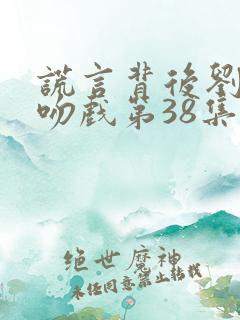 謊言背後劉
吻戲第38集
絕世魔神
未经同意禁止转载